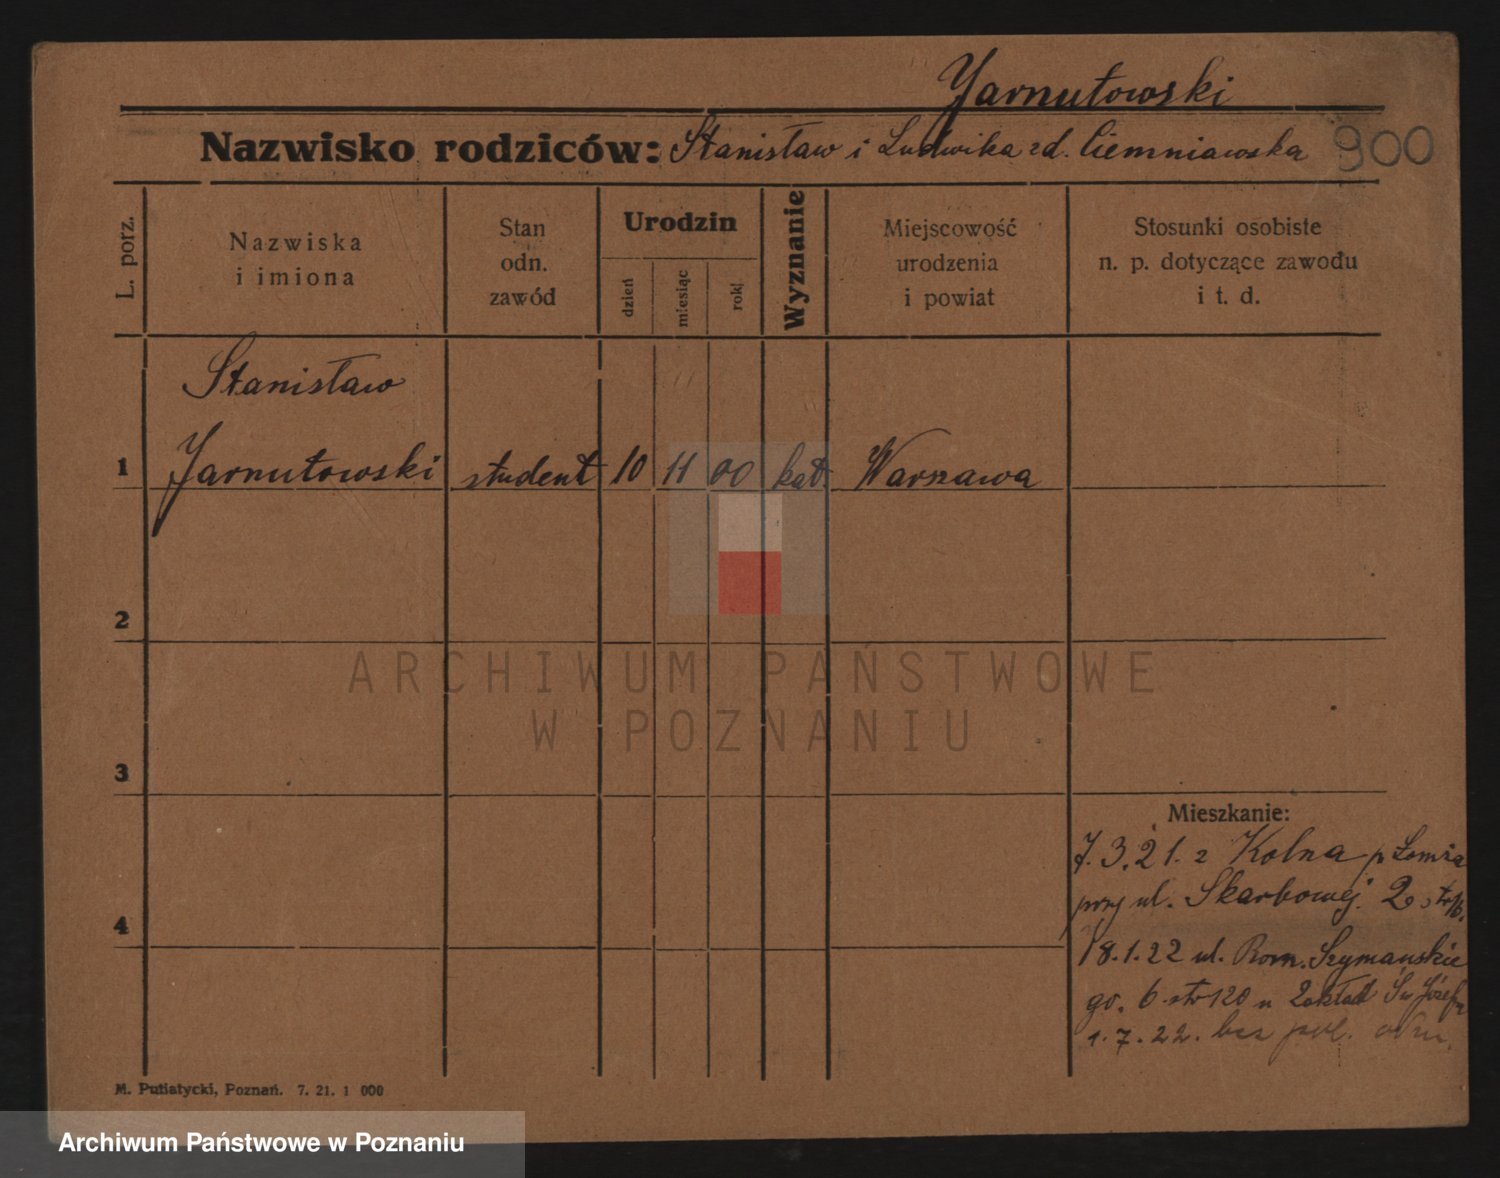 Jarnutowski
Nazwisko rodziców: Stanisław i Ludwika zd. Ciemniawska 900
L. porz.
Nazwiska
i imiona
Stan
odn.
zawód
Urodzin
dzień
miesiąc
rok
Wyznanie
Miejscowość
urodzenia
i powiat
Stosunki osobiste
n. p. dotyczące zawodu
i t. d.
Stanisław
1 Jarnutowski student 10 11 00 kat Warszawa
2
ARCHIWUM PAŃSTWOWE
W POZNANIU
3
Mieszkanie:
7.3.21. z Kolna p Łomża
przy ul. Skarbowej 2
4
18.1.22 ul. Rom. Szymańskie
go. 6 str 120 u Zakład Św Józefa
1.7.22. bez pol. odm.
M. Putiatycki, Poznań. 7. 21. 1 000
Archiwum Państwowe w Poznaniu